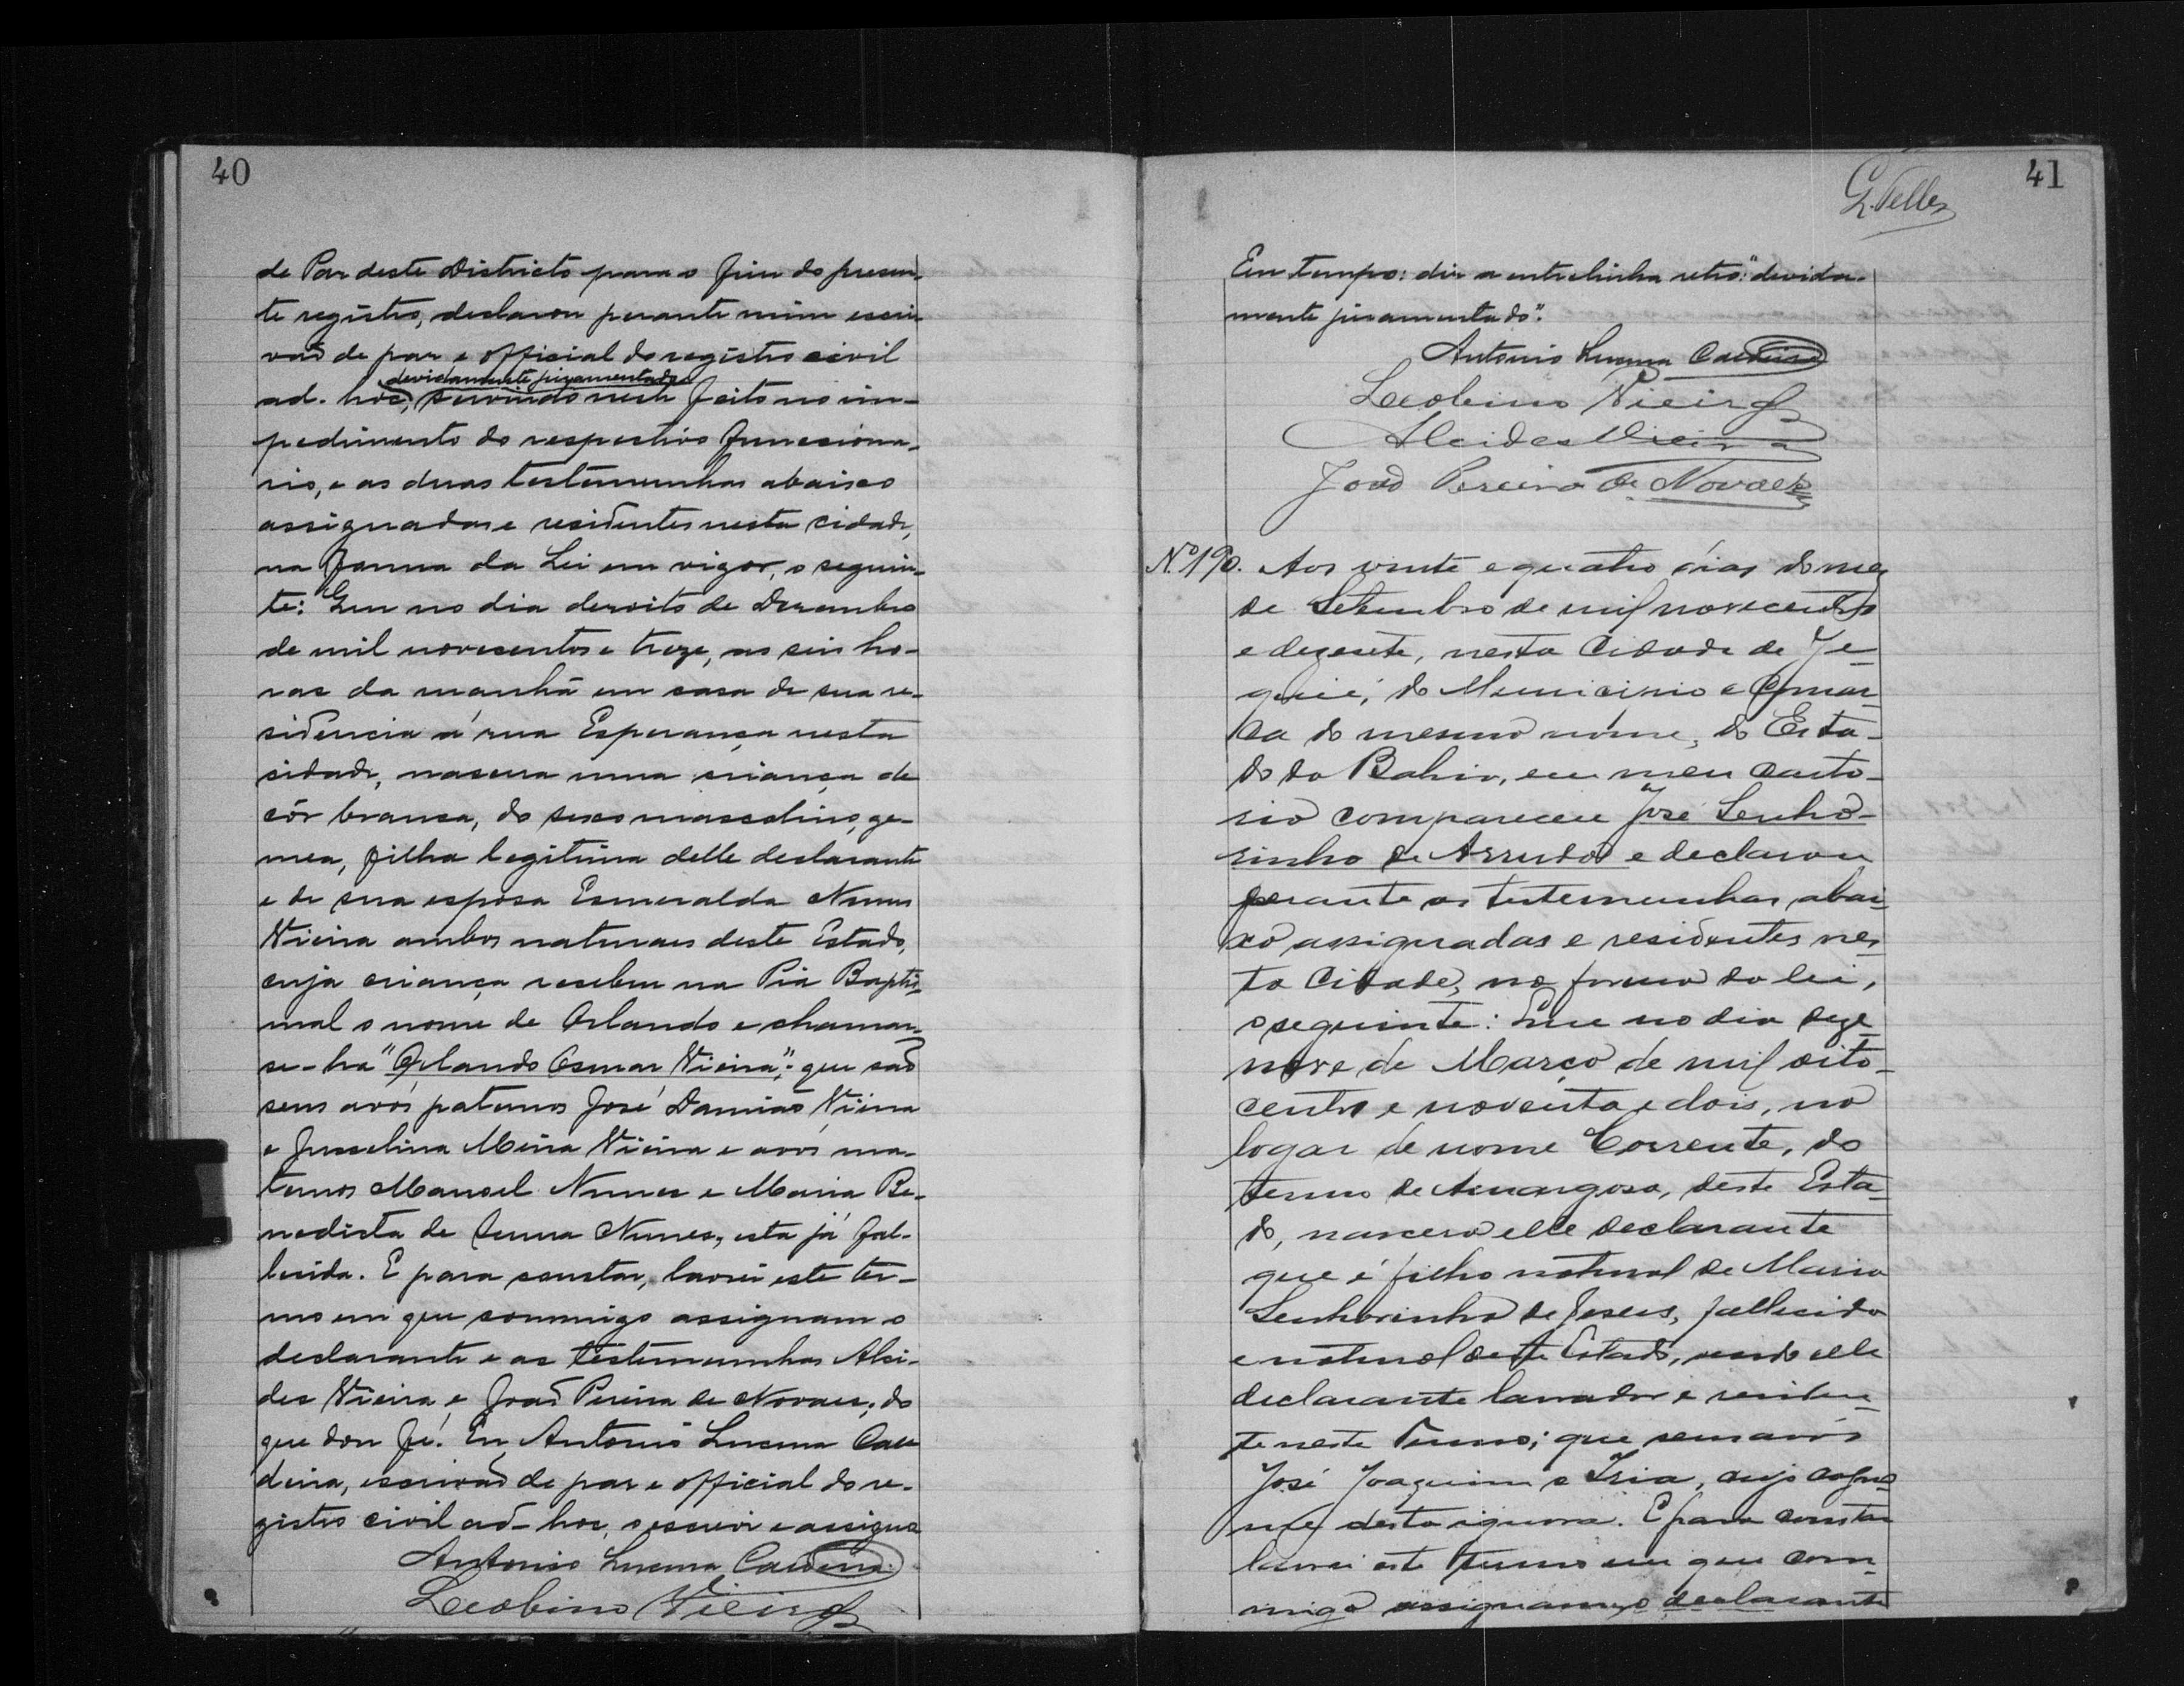 40
de Paz deste Districto para o fim do presen-
te registro, declarou perante mim escri-
vaõ de paz e official do registro civil
devidamente juramentado
ad-hoc, servindo neste feito no im-
pedimento do respectivo funcciona-
rio, e as duas testemunhas abaixo
assignadas e residentes nesta cidade,
na forma da Lei em vigor, o seguin-
te: Que no dia dezoito de Dezembro
de mil novecentos e treze, as seis ho-
ras da manhã em casa de sua re-
sidencia á rua Esperança nesta
cidade, nascera uma criança de
côr branca, do sexo masculino, ge-
mea, filha legitima delle declarante
e de sua esposa Esmeralda Nunes
Vieira ambos naturaes deste Estado,
cuja criança recebeu na Pia Baptis-
mal o nome de Orlando e chamar-
se-ha "Orlando Osmar Vieira"; que saõ
seus avós paternos José Damiaõ Vieira
e Jusselina Meira Vieira e avós ma-
ternos Manoel Nunes e Maria Be-
nedicta de Senna Nunes, esta já fal-
lecida. E para constar, lavrei este ter-
mo em que commigo assignam o
declarante e as testemunhas Alci-
des Vieira e Joaõ Pereira de Novaes; do
que dou fé. Eu, Antonio Lucena Cal
deira, escrivaõ de paz e official do re-
gistro civil ad-hoc, o escrevi e assigno
Antonio Lucena Caldeira
Leobino Vieira
41
G. Telles
Em tempo: diz a entrelinha retro: "devida-
mente juramentado".
Antonio Lucena Caldeira
Leobino Vieira
Alcides Vieira
Joaõ Pereira de Novaes
Nº 190. Aos vinte e quatro dias do mez
de Setembro de mil novecentos
e dezesete, nesta Cidade de Je-
quié, do Municipio e Comar-
ca do mesmo nome, do Esta-
do da Bahia, em meu carto-
rio compareceu José Senho-
rinho de Arruda e declarou
perante as testemunhas abai-
xo assignadas e residentes nes-
ta Cidade, na forma da lei,
o seguinte: Que no dia deze-
nove de Março de mil oito-
centos e noventa e dois, no
logar de nome Corrente, do
termo de Amargosa, deste Esta-
do, nascera elle declarante
que é filho natural de Maria
Senhorinha de Jesus, fallecida
e natural deste Estado, sendo elle
declarante lavrador e residen-
te neste Termo; que seus avós
José Joaquim e Iria, cujo cogno-
me desta ignora. E para constar
lavrei este termo em que com-
migo assignam o declarante